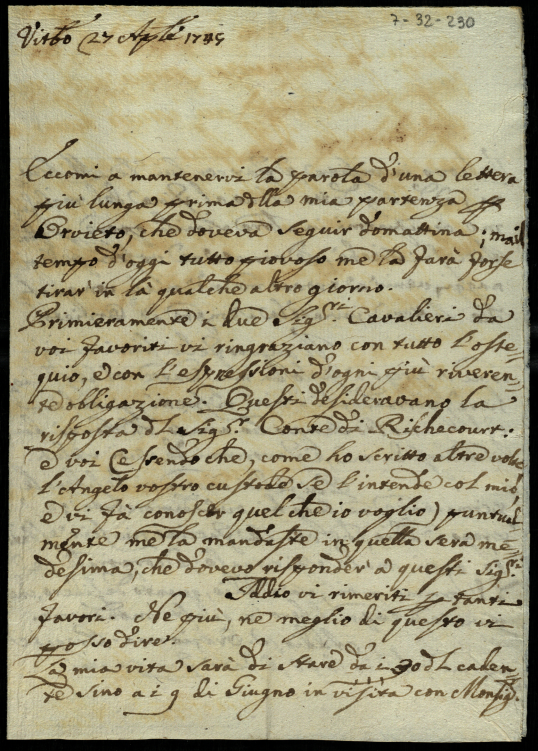 7-32-230
Vitbo 27 Aple 1745
Eccomi a mantenervi la parola d'una lettera
più lunga prima dlla mia partenza p
Orvieto, che doveva seguir d'omattina; ma il
tempo d'oggi tutto piovoso me la farà forse
tirar in là qualche altro giorno.
Primieramente i due Sigri Cavalieri da
voi favoriti vi ringraziano con tutto l'osse-
quio, e con l'espressioni d'ogni più riveren-
te obligazione. Questi desideravano la
risposta dl Sigr Conte di Richecourt:
e voi (essendo che, come ho scritto altre volte
l'Angelo vostro custode se l'intende col mio,
e vi fà conoscer quel che io voglio) puntual
mente me la mandaste in quella sera me-
desima, che dovevo risponder a questi Sigri
Iddio vi rimeriti p tanti
favori. Ne più, ne meglio di questo vi
posso dire.
La mia vita sarà di stare da i 30 dl caden-
te sino a i 9 di Giugno in visita con Monsigr